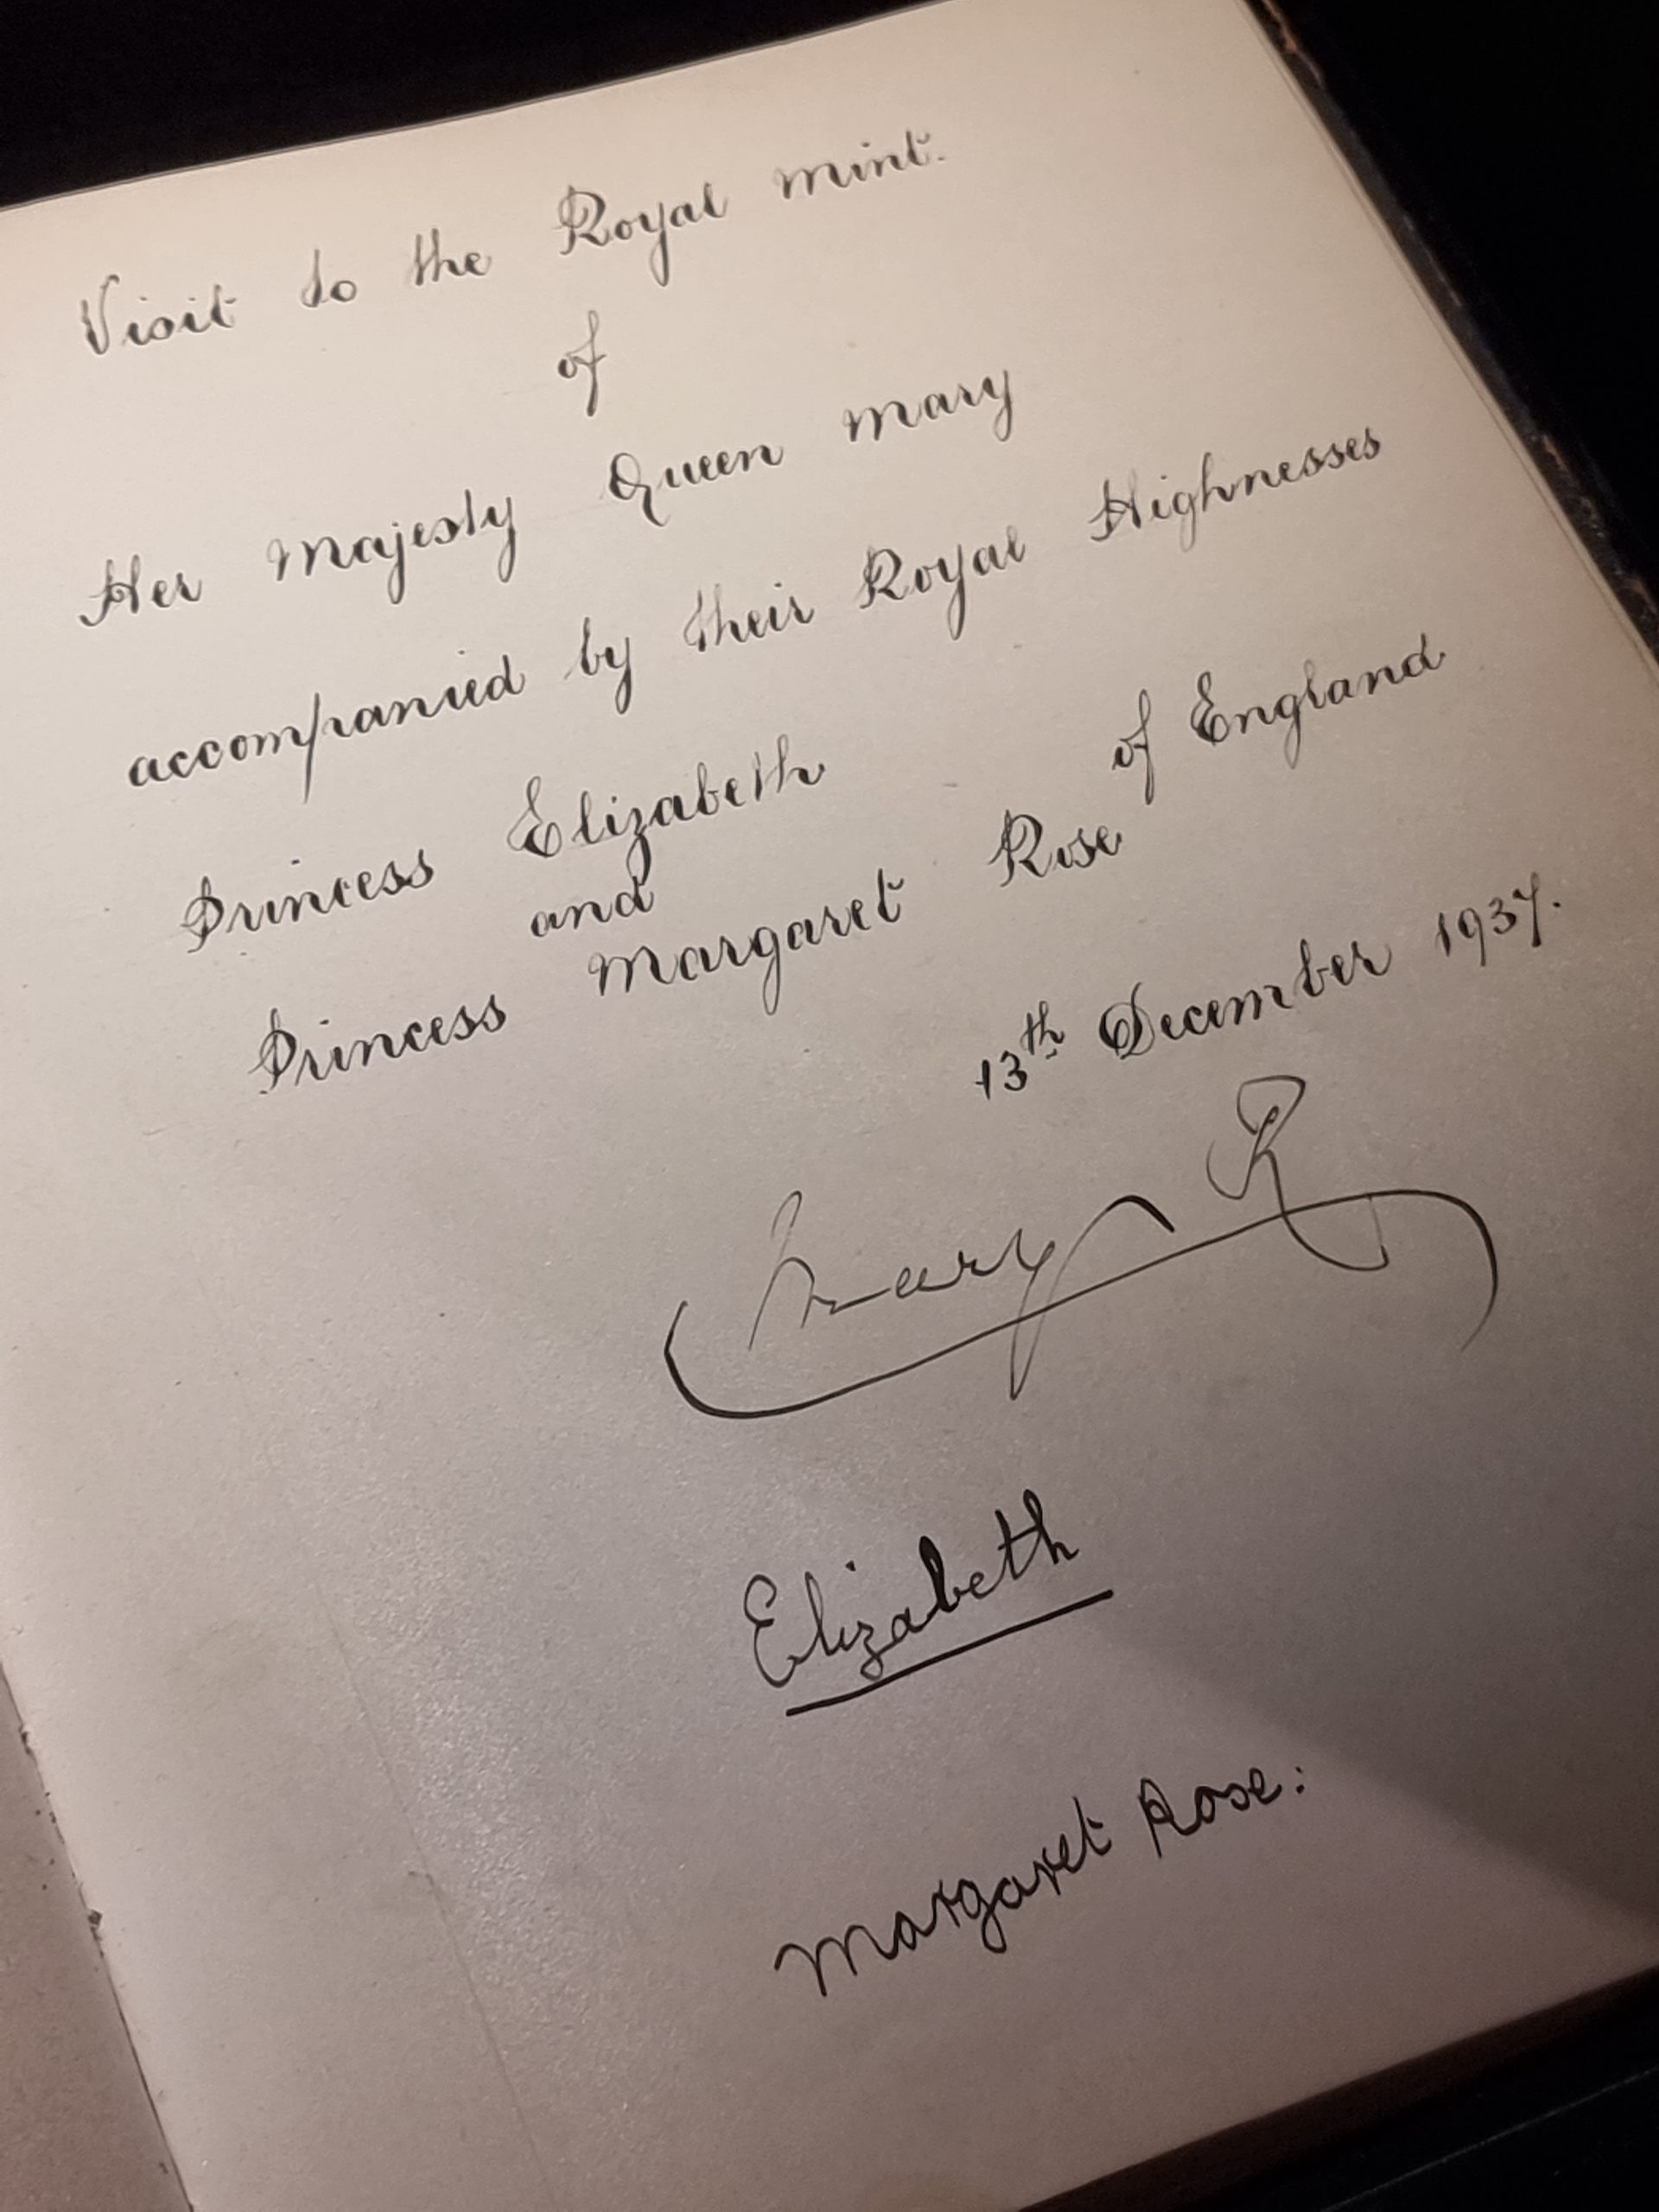 Visit to the Royal Mint.
of
Her Majesty Queen Mary
accompanied by Their Royal Highnesses
Princess Elizabeth
and
of England
Princess Margaret Rose
13th December 1937.
Mary R
Elizabeth
Margaret Rose: